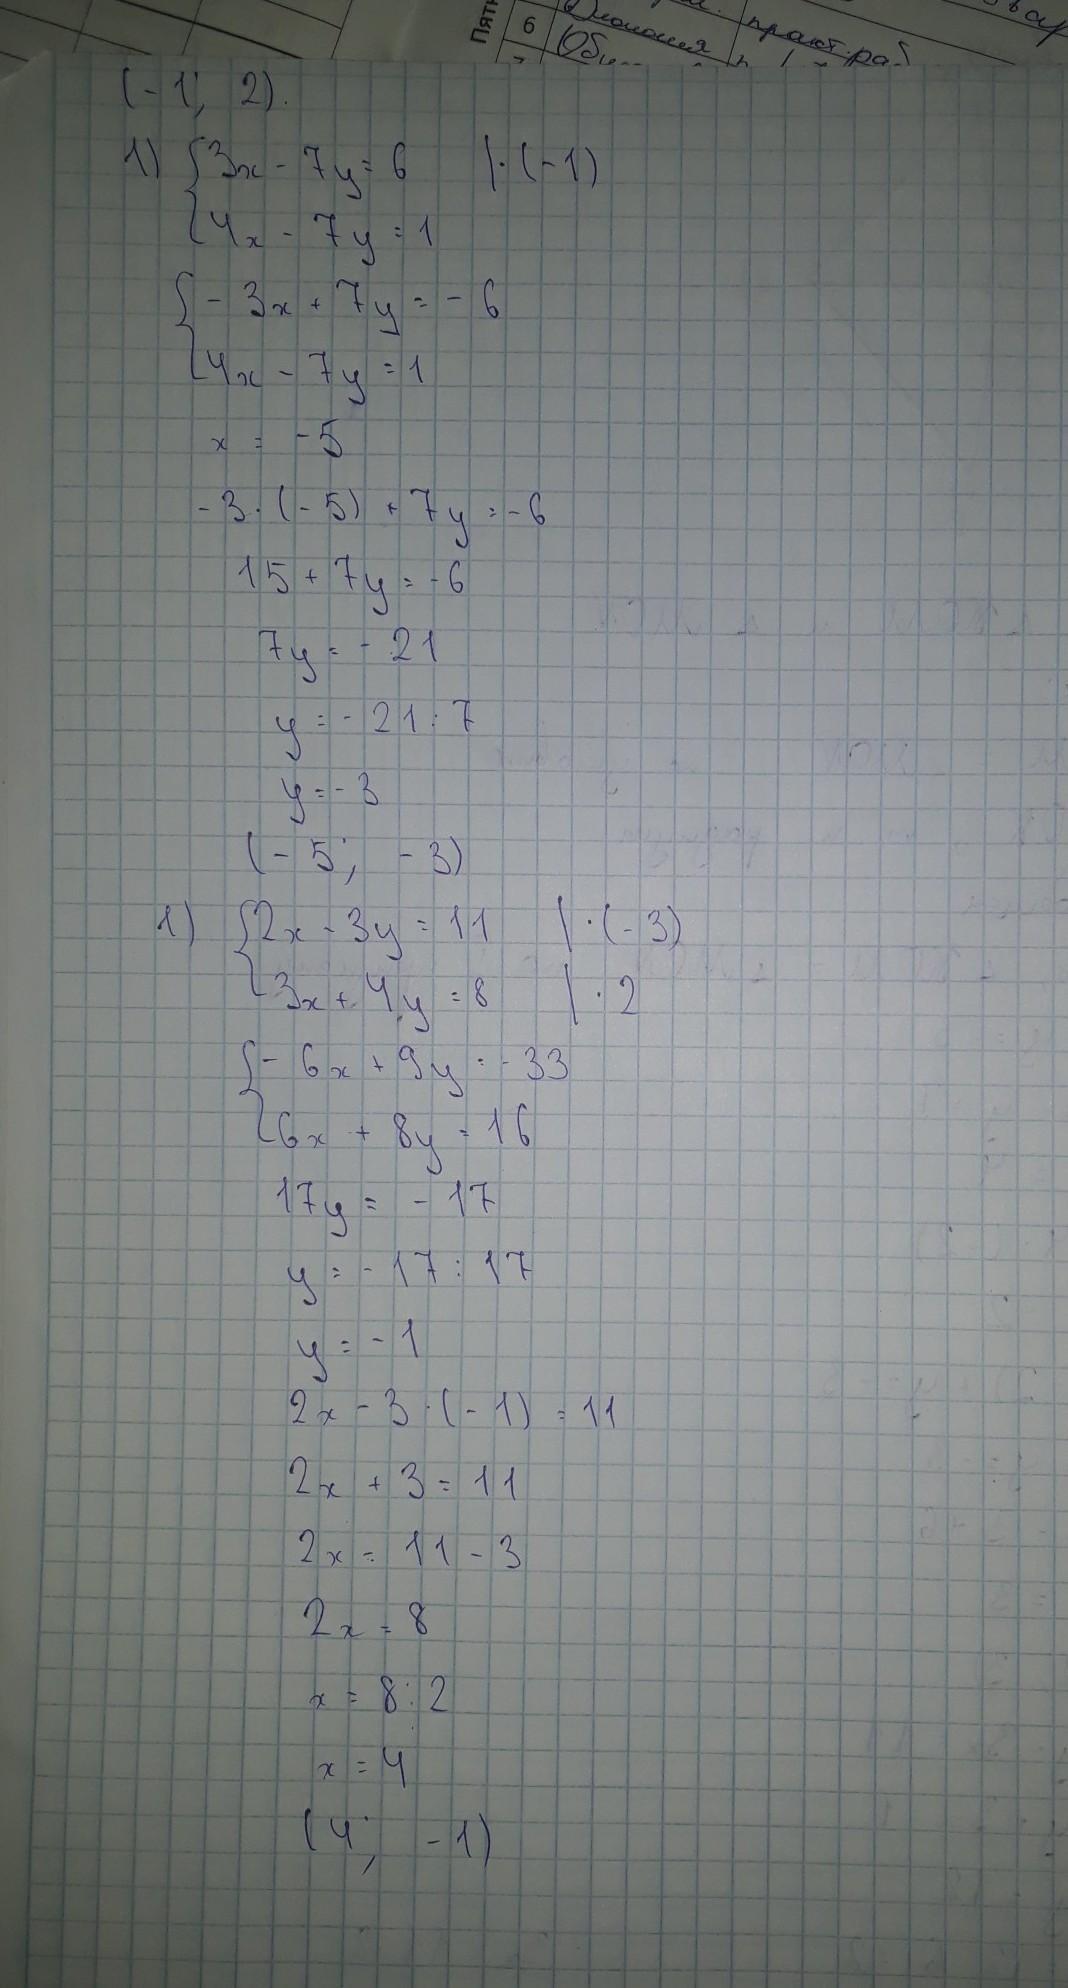 Пятн
6
практ. раб
(-1; 2).
1) {3x - 7y = 6 | · (-1)
4x - 7y = 1
{- 3x + 7y = - 6
4x - 7y = 1
x = -5
-3 · (-5) + 7y = -6
15 + 7y = -6
7y = - 21
y = - 21 : 7
y = - 3
(- 5; - 3)
1) {2x - 3y = 11 | · (-3)
3x + 4y = 8 | · 2
{- 6x + 9y = -33
6x + 8y = 16
17y = - 17
y = - 17 : 17
y = - 1
2x - 3 · (-1) = 11
2x + 3 = 11
2x = 11 - 3
2x = 8
x = 8 : 2
x = 4
(4; -1)